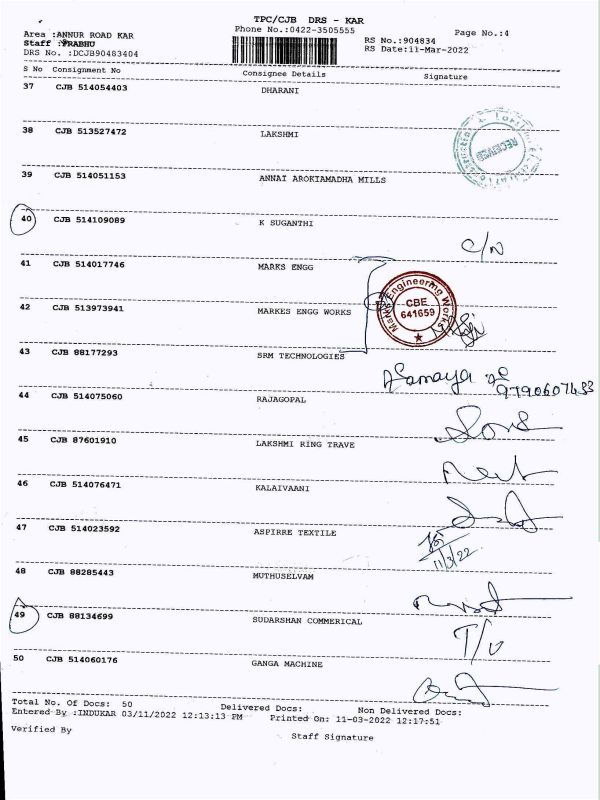 TPC/CJB DRS - KAR
Area :ANNUR ROAD KAR Phone No.:0422-3505555 Page No.:4
Staff :PRABHU RS No.:904834
DRS No. :DCJB90483404 RS Date:11-Mar-2022
S No Consignment No Consignee Details Signature
37 CJB 514054403 DHARANI
38 CJB 513527472 LAKSHMI
RECEIVED
39 CJB 514051153 ANNAI AROKIAMADHA MILLS
40 CJB 514109089 K SUGANTHI
C/N
41 CJB 514017746 MARKS ENGG
Marks Engineering Works
CBE
641659
42 CJB 513973941 MARKES ENGG WORKS
43 CJB 88177293 SRM TECHNOLOGIES
44 CJB 514075060 RAJAGOPAL
45 CJB 87601910 LAKSHMI RING TRAVE
46 CJB 514076471 KALAIVAANI
47 CJB 514023592 ASPIRRE TEXTILE
11/3/22
48 CJB 88285443 MUTHUSELVAM
49 CJB 88134699 SUDARSHAN COMMERICAL
50 CJB 514060176 GANGA MACHINE
Total No. Of Docs: 50 Delivered Docs: Non Delivered Docs:
Entered By :INDUKAR 03/11/2022 12:13:13 PM Printed On: 11-03-2022 12:17:51
Verified By Staff Signature